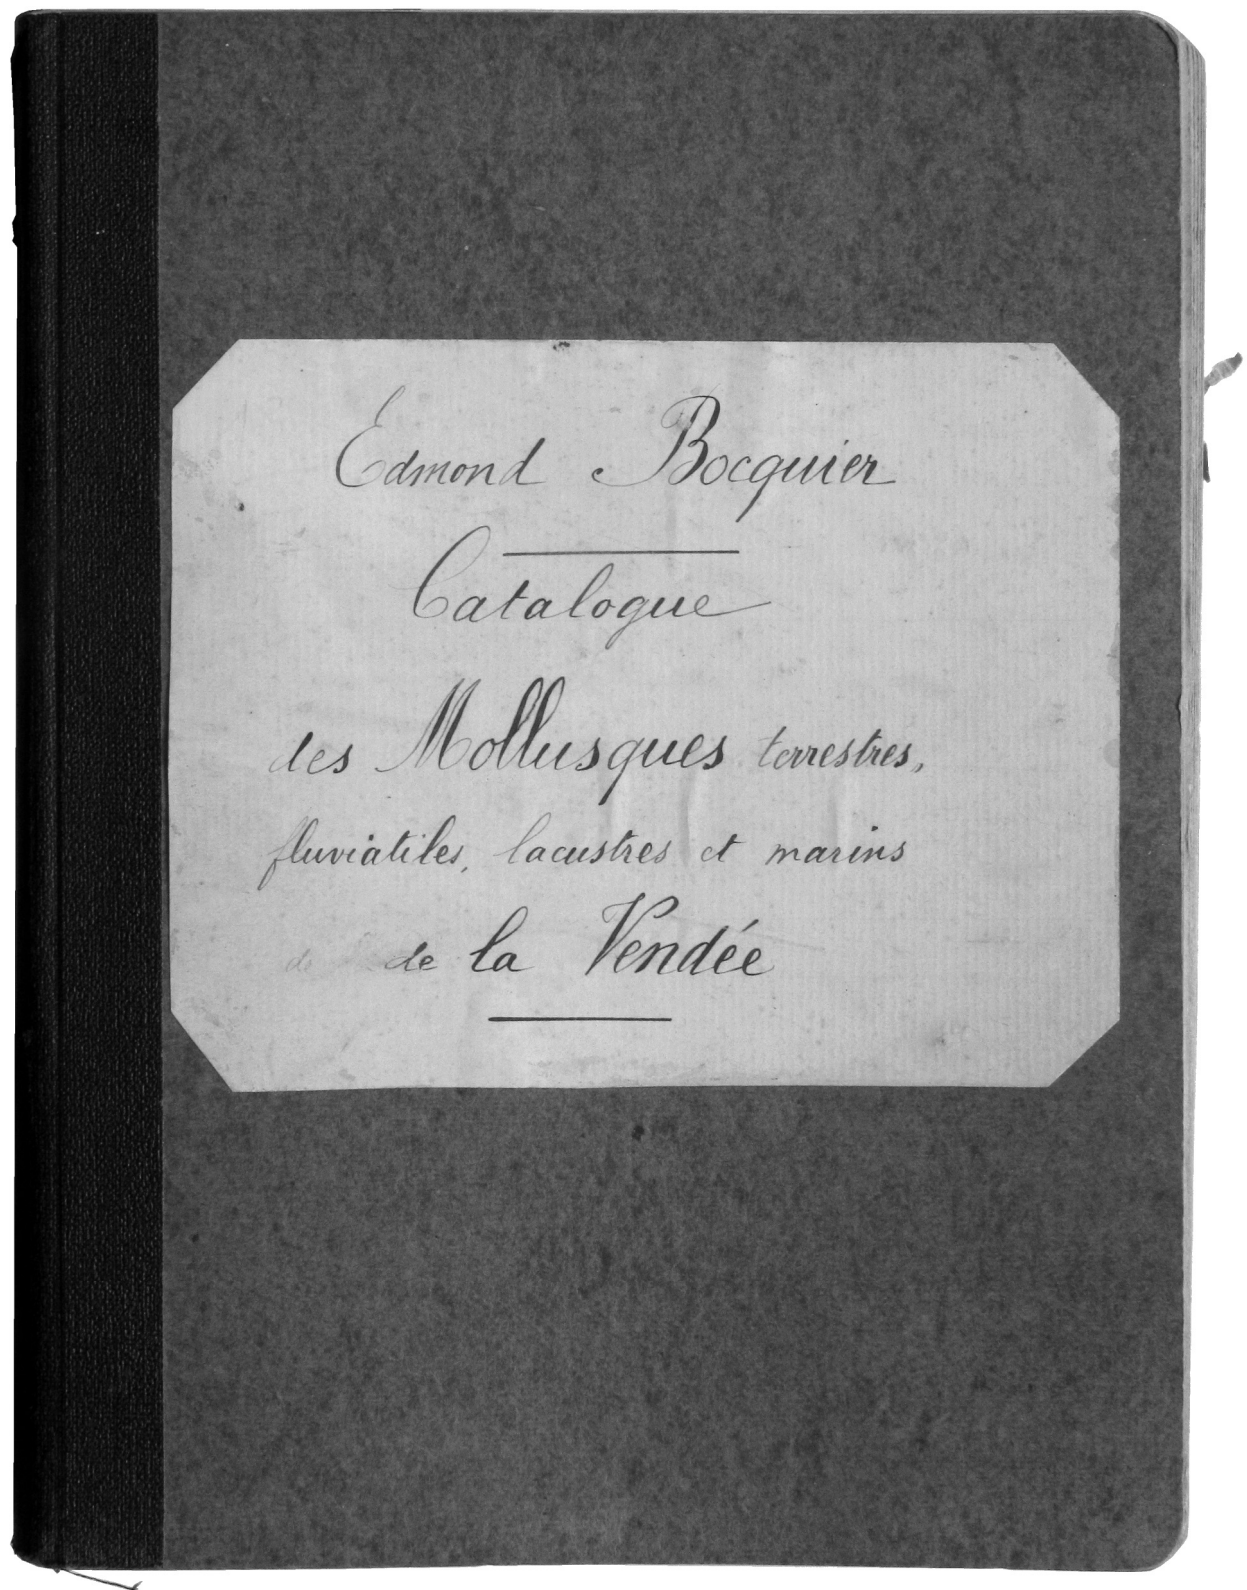 Edmond Bocquier
Catalogue
des Mollusques terrestres,
fluviatiles, lacustres et marins
de la Vendée